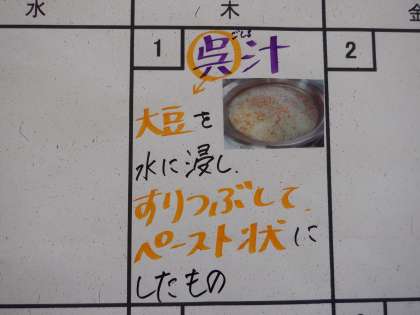 水 木 金
1 呉汁 2
ごじる
大豆を
水に浸し、
すりつぶして、
ペースト状に
したもの